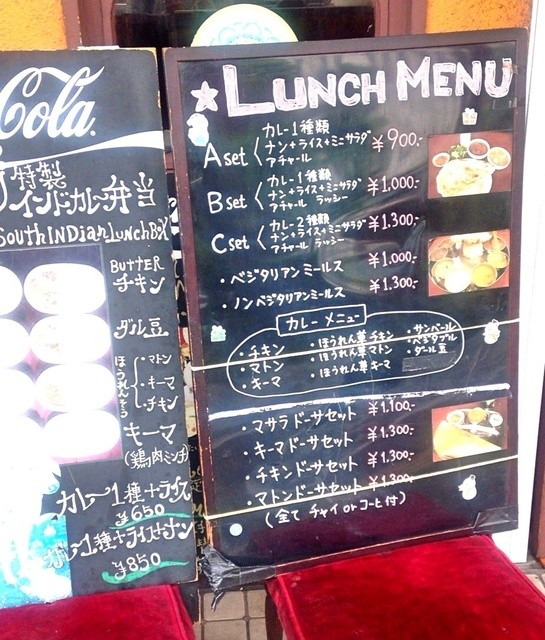 Cola
特製
インドカレー弁当
South INDian Lunch Box
BUTTER
チキン
ダル豆
ほうれんそう
・マトン
・キーマ
・チキン
キーマ
(鶏肉ミンチ)
カレー1種+ライス
¥650
カレー1種+ライス+ナン
¥850
☆LUNCH MENU
A set
カレー1種類
ナン+ライス+ミニサラダ
アチャール
¥900.-
B set
カレー1種類
ナン+ライス+ミニサラダ
アチャール ラッシー
¥1,000.-
C set
カレー2種類
ナン+ライス+ミニサラダ
アチャール ラッシー
¥1,300.-
・ベジタリアンミールス ¥1,000.-
・ノンベジタリアンミールス ¥1,300.-
カレーメニュー
・チキン ・ほうれん草チキン ・サンバール
・マトン ・ほうれん草マトン ・ベジタブル
・キーマ ・ほうれん草キーマ ・ダール豆
・マサラドーサセット ¥1,100.-
・キーマドーサセット ¥1,300.-
・チキンドーサセット ¥1,300.-
・マトンドーサセット ¥1,300.-
(全て チャイ or コーヒー付)